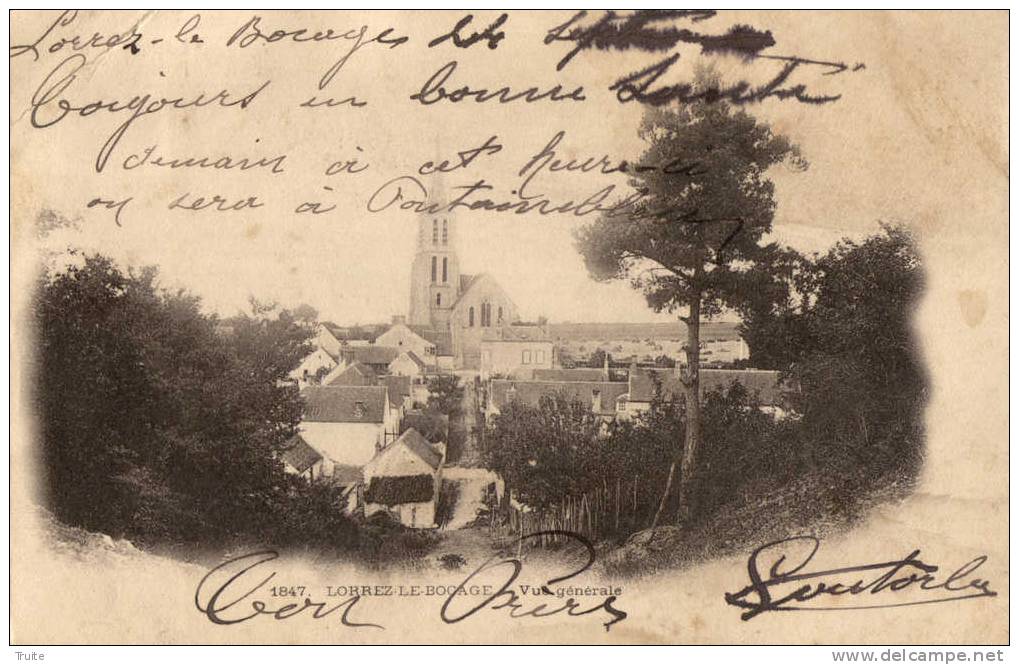 Lorrez-le Bocage le septembre
Toujours en bonne Santé
demain à cet heure-ci
on sera à Fontainebleau
1847. LORREZ-LE-BOCAGE - Vue générale
Ton Père
Truite
www.delcampe.net